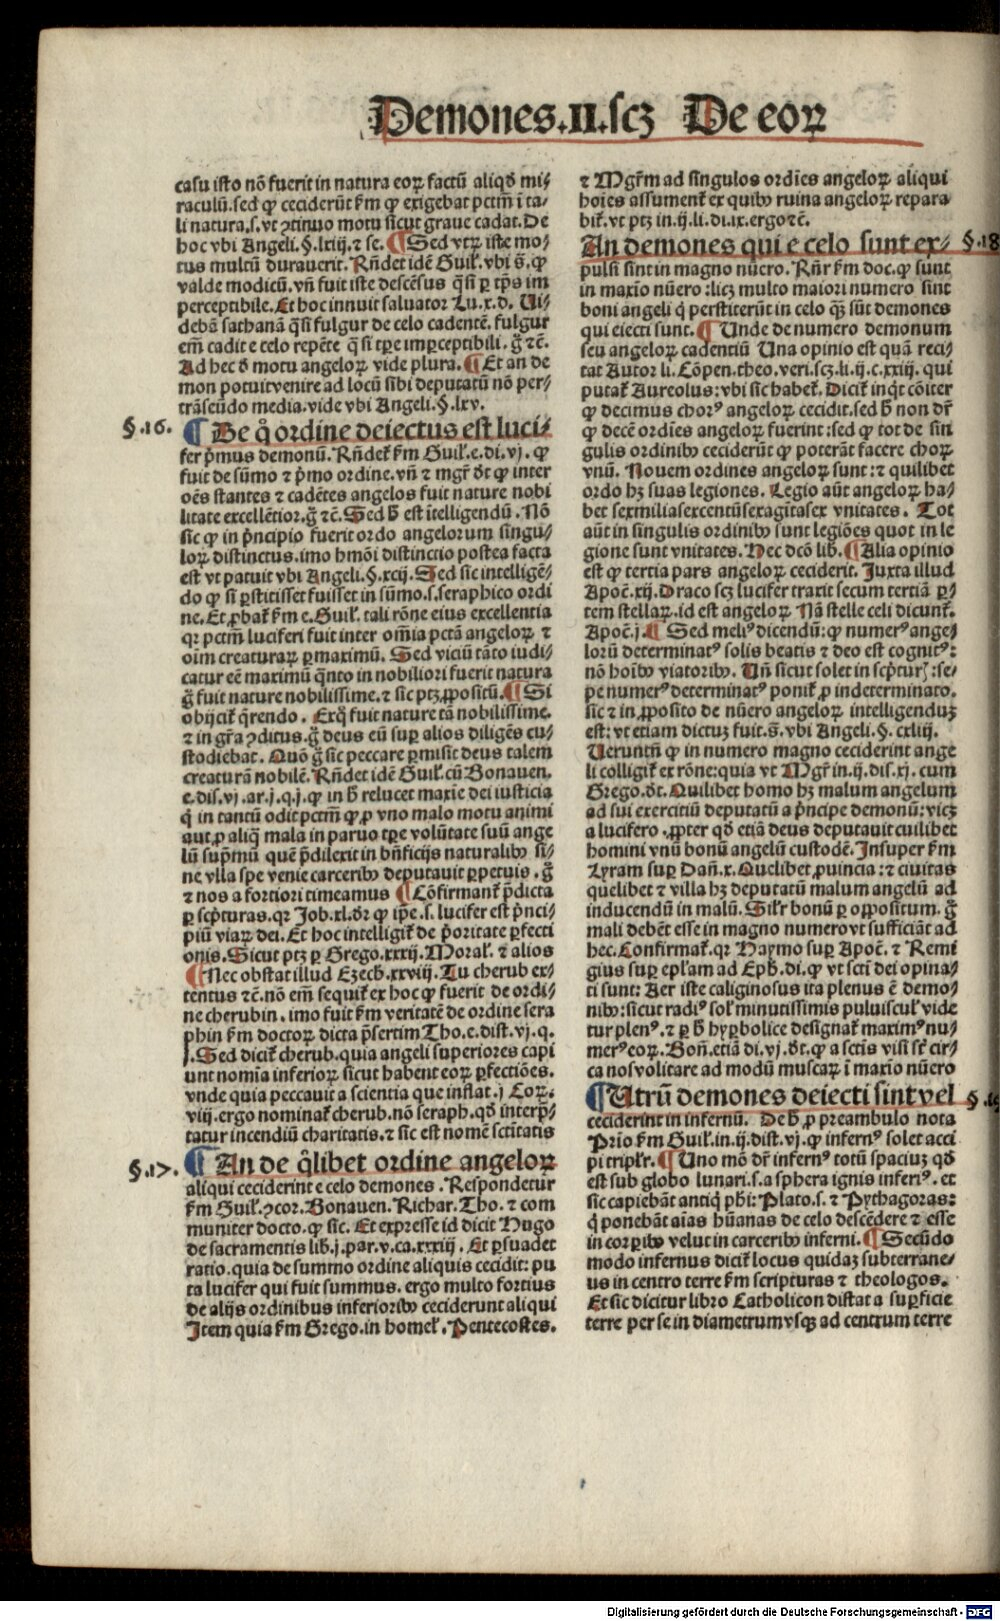 Demones.II.scꝫ De eoꝝ
casu isto nõ fuerit in natura eoꝝ factũ aliqđ mi⸗
raculũ.sed ꝙ ceciderũt ẜm ꝙ exigebat pctm̃ ĩ ta⸗
li natura.s.vt ↄtinuo motu sicut graue cadat.De
hoc vbi Angeli.§.lxiij.⁊ se.¶Sed vtꝝ iste mo⸗
tus multũ durauerit.Rñdet idẽ Guil̃.vbi s̃.ꝙ
valde modicũ.vñ fuit iste descẽsus q̃si ꝑ tp̃s im
perceptibile.Et hoc innuit saluator Lu.x.d. Ui⸗
debã sathanã q̃si fulgur de celo cadentẽ.fulgur
em̃ cadit e celo repẽte q̃ si tꝑe imꝑceptibili.g̃ ⁊c̃.
Ad hec đ motu angeloꝝ vide plura.¶Et an de
mon potuit venire ad locũ sibi deputatũ nõ per⸗
trãseũdo media.vide vbi Angeli.§.lxv.
§.16. ¶De q̃ ordine deiectus est luci⸗
fer p̃mus demonũ.Rñdet̃ ẜm Guil̃.e.di.vj.ꝙ
fuit de sũmo ⁊ p̃mo ordine.vñ ⁊ mgr̃ đt ꝙ inter
oẽs stantes ⁊ cadẽtes angelos fuit nature nobi
litate excellẽtior.g̃ ⁊c̃.Sed ħ est ĩtelligendũ.Nõ
sic ꝙ in p̃ncipio fuerit ordo angelorum singu⸗
loꝝ distinctus.imo hmõi distinctio postea facta
est vt patuit vbi Angeli.§.xcij.Sed sic intelligẽ⸗
do ꝙ si ꝑstitisset fuisset in sũmo.s.seraphico ordi
ne.Et ꝓbat̃ ẜm e.Guil̃.tali rõne eius excellentia
qꝛ pctm̃ luciferi fuit inter om̃ia pctã angeloꝝ ⁊
oim creaturaꝝ ꝑmaximũ.Sed viciũ tãto iudi⸗
catur eẽ maximũ q̃nto in nobiliori fuerit natura
g̃ fuit nature nobilissime.⁊ sic ptꝫ ꝓpositũ.¶Si
obijcit̃ q̃rendo. Exq̃ fuit nature tã nobilissime.
⁊ in gr̃a ↄditus.g̃ deus eũ suꝑ alios diligẽs cu⸗
stodiebat.Quõ g̃ sic peccare ꝑmisit deus talem
creaturã nobilẽ.Rñdet idẽ Guil̃.cũ Bonauen.
e.dis.vj.ar.j.q.j.ꝙ in ħ relucet maxie dei iusticia
q̃ in tantũ odit pctm̃ ꝙ ꝓ vno malo motu animi
aut ꝓ aliq̃ mala in paruo tꝑe volũtate suũ ange
lũ sup̃mũ quẽ p̃dilexit in bñficijs naturalibꝰ si⸗
ne vlla spe venie carceribꝰ deputauit ꝑpetuis.g̃
⁊ nos a fortiori timeamus ¶Cõfirmant̃ p̃dicta
ꝑ scp̃turas.qꝛ Job.xl.đr ꝙ ip̃e.s.lucifer est p̃nci⸗
piũ viaꝝ dei.Et hoc intelligit̃ de p̃oritate ꝑfecti
onis.Sicut ptꝫ ꝑ Grego.xxxij.Moral̃.⁊ alios
¶Nec obstat illud Ezech.xxviij.Tu cherub ex⸗
tentus ⁊c̃.nõ em̃ sequit̃ ex hoc ꝙ fuerit de ordi⸗
ne cherubin.imo fuit ẜm veritatẽ de ordine sera
phin ẜm doctoꝝ dicta p̃sertim Tho.e.dist.vj.q.
j.Sed dicit̃ cherub.quia angeli superiores capi
unt nomĩa inferioꝝ sicut habent eoꝝ ꝑfectiões.
vnde quia peccauit a scientia que inflat.j Coꝝ.
viij.ergo nominat̃ cherub.nõ seraph.qđ interp̃⸗
tatur incendiũ charitatis.⁊ sic est nomẽ sctĩtatis
§.17. ¶An de q̃libet ordine angeloꝝ
aliqui ceciderint e celo demones.Respondetur
ẜm Guil̃.ↄcor.Bonauen.Richar.Tho.⁊ com
muniter docto.ꝙ sic.Et expresse id dicit Hugo
de sacramentis lib.j.par.v.ca.xxxiij. Et ꝑsuadet
ratio.quia de summo ordine aliquis cecidit: pu
ta lucifer qui fuit summus.ergo multo fortius
de alijs ordinibus inferioribꝰ ceciderunt aliqui
Item quia ẜm Grego.in homel̃.Pentecostes.
⁊ Mgr̃m ad singulos ordĩes angeloꝝ aliqui
hoĩes assument̃ ex quibꝰ ruina angeloꝝ repara
bit̃.vt ptꝫ in.ij.li.di.ix.ergo ⁊c̃.
An demones qui e celo sunt ex⸗ §.18
pulsi sint in magno nũero.Rñr̃ ẜm doc.ꝙ sunt
in maxĩo nũero:licꝫ multo maiori numero sint
boni angeli q̃ perstiterũt in celo q̃ꝫ sũt demones
qui eiecti sunt.¶Unde de numero demonum
seu angeloꝝ cadentiũ Una opinio est quã reci⸗
tat Autor li.Cõpen.theo.veri.scꝫ.li.ij.c.xxiij.qui
putat̃ Aureolus:vbi sic habet̃.Dicit̃ inq̃t cõiter
ꝙ decimus chorꝰ angeloꝝ cecidit.sed ħ non dr̃
ꝙ decẽ ordĩes angeloꝝ fuerint:sed ꝙ tot de sin
gulis ordinibꝰ ceciderũt ꝙ poterãt facere choꝝ
vnũ. Nouem ordines angeloꝝ sunt:⁊ quilibet
ordo hꝫ suas legiones. Legio aũt angeloꝝ ha⸗
bet sexmiliasexcentũsexagĩtasex vnitates. Tot
aũt in singulis ordinibꝰ sunt legiões quot in le
gione sunt vnitates.Hec dcõ lib.¶Alia opinio
est ꝙ tertia pars angeloꝝ ceciderit.Juxta illud
Apoc̃.xij.Draco scꝫ lucifer traxit secum tertiã ꝑ⸗
tem stellaꝝ.id est angeloꝝ Nã stelle celi dicunt̃.
Apoc̃.j.¶Sed meliꝰ dicendũ:ꝙ numerꝰ ange⸗
lorũ determinatꝰ solis beatis ⁊ deo est cognitꝰ:
nõ hoĩbꝰ viatoribꝰ. Uñ sicut solet in scp̃tur̃:se⸗
pe numerꝰ determinatꝰ ponit̃ ꝓ indeterminato.
sic ⁊ in ꝓposito de nũero angeloꝝ intelligenduꝫ
est:vt etiam dictuꝫ fuit.s̃.vbi Angeli.§.cxliij.
Ueruntñ ꝙ in numero magno ceciderint ange
li colligit̃ ex rõne:quia vt Mgr̃ in.ij.dis.xj.cum
Grego.đt.Quilibet homo hꝫ malum angelum
ad sui exercitiũ deputatũ a p̃ncipe demonũ:vicꝫ
a lucifero.ꝓpter qđ etiã deus deputauit cuilibet
homini vnũ bonũ angelũ custodẽ.Insuper ẜm
Lyram suꝑ Dañ.x.Quelibet ꝓuincia:⁊ ciuitas
quelibet ⁊ villa hꝫ deputatũ malum angelũ ad
inducendũ in malũ.Sil̃r bonũ ꝑ oppositum.g̃
mali debẽt esse in magno numero vt sufficiãt ad
hec.Confirmat̃.qꝛ Haymo suꝑ Apoc̃.⁊ Remi
gius suꝑ epl̃am ad Eph̃.di.ꝙ vt scti dei opina⸗
ti sunt: Aer iste caliginosus ita plenus ẽ demo⸗
nibꝰ:sicut radiꝰ sol̃ minutissimis puluiscul̃ vide
tur plenꝰ.⁊ ꝑ ħ hyꝑbolice designat̃ maximꝰ nu⸗
merꝰ eoꝝ.Boñ.etiã di.vj.đt.ꝙ a sctis visi st̃ cir⸗
ca nos volitare ad modũ muscaꝝ ĩ maxio nũero
¶Utrũ demones deiecti sint vel §.19
ceciderint in infernũ. De ħ ꝓ preambulo nota
Prĩo ẜm Guil̃.in.ij.dist.vj.ꝙ infernꝰ solet acci
pi tripl̃r.¶Uno mõ dr̃ infernꝰ totũ spaciuꝫ qđ
est sub globo lunari.s.a sphera ignis inferiꝰ.et
sic capiebãt antiq̃ phi:Plato.s.⁊ Pythagoras:
q̃ ponebãt aĩas hũanas de celo descẽdere ⁊ esse
in corꝑibꝰ velut in carceribꝰ inferni.¶Secũdo
modo infernus dicit̃ locus quidaꝫ subterrane⸗
us in centro terre ẜm scripturas ⁊ theologos.
Et sic dicitur libro Catholicon distat a suꝑficie
terre per se in diametrum vsqꝫ ad centrum terre
Digitalisierung gefördert durch die Deutsche Forschungsgemeinschaft - DFG